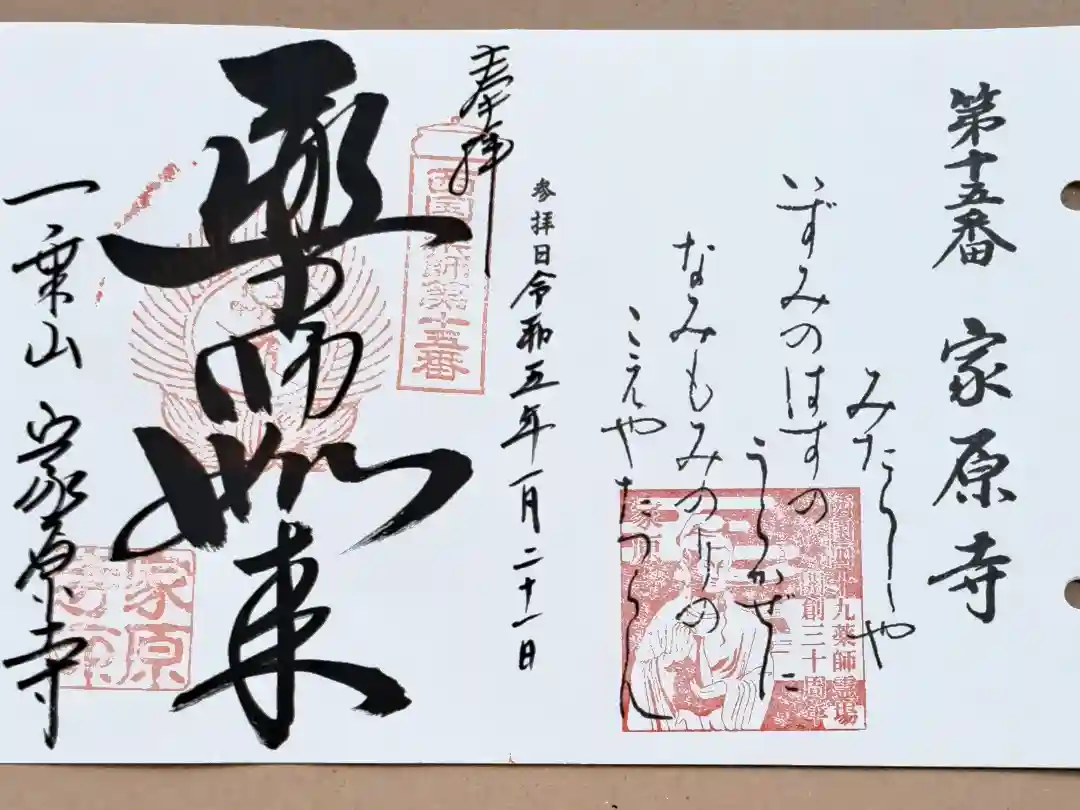 第十五番 家原寺
みたらしや
いずみのはすの
うらかぜに
なみもみのりの
こえやたつらん
西国四十九薬師霊場
開創三十周年
家原寺
参拝日令和五年一月二十一日
奉拝
西国薬師第十五番
薬師如来
一乗山 家原寺
家原
寺印